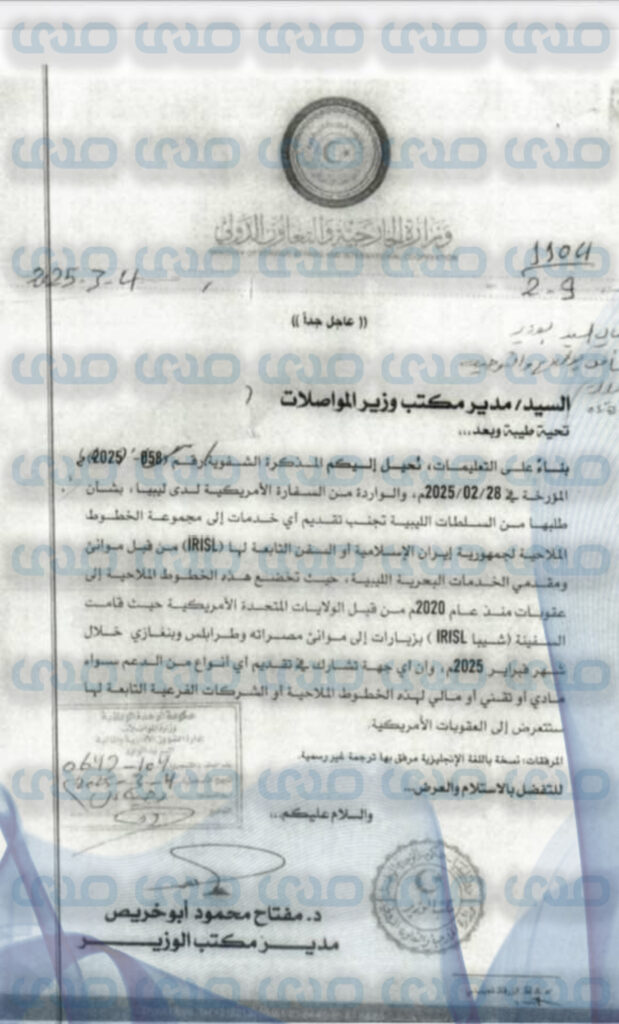 صدى صدى صدى صدى صدى
وزارة الخارجية والتعاون الدولي
1104
2-9
2025-3-4
(( عاجل جداً ))
السيد/ مدير مكتب وزير المواصلات
تحية طيبة وبعد...
بناءً على التعليمات، نُحيل إليكم المذكرة الشفوية رقم (058- 2025)
المؤرخة في 2025/02/28م، والواردة من السفارة الأمريكية لدى ليبيا، بشأن
طلبها من السلطات الليبية تجنب تقديم أي خدمات إلى مجموعة الخطوط
الملاحية لجمهورية إيران الإسلامية أو السفن التابعة لها (IRISL) من قبل موانئ
ومقدمي الخدمات البحرية الليبية، حيث تخضع هذه الخطوط الملاحية إلى
عقوبات منذ عام 2020م من قبل الولايات المتحدة الأمريكية حيث قامت
السفينة (شيبا IRISL ) بزيارات إلى موانئ مصراته وطرابلس وبنغازي خلال
شهر فبراير 2025م، وان أي جهة تشارك في تقديم أي أنواع من الدعم بسواء
مادي أو تقني أو مالي لهذه الخطوط الملاحية أو الشركات الفرعية التابعة لها
ستتعرض إلى العقوبات الأمريكية.
المرفقات: نسخة باللغة الإنجليزية مرفق بها ترجمة غير رسمية.
للتفضل بالاستلام والعرض...
والسلام عليكم...
حكومة الوحدة الوطنية
وزارة المواصلات
0642-104
2025-3-4
د. مفتاح محمود أبوخريص
مديــر مكتب الوزيــر